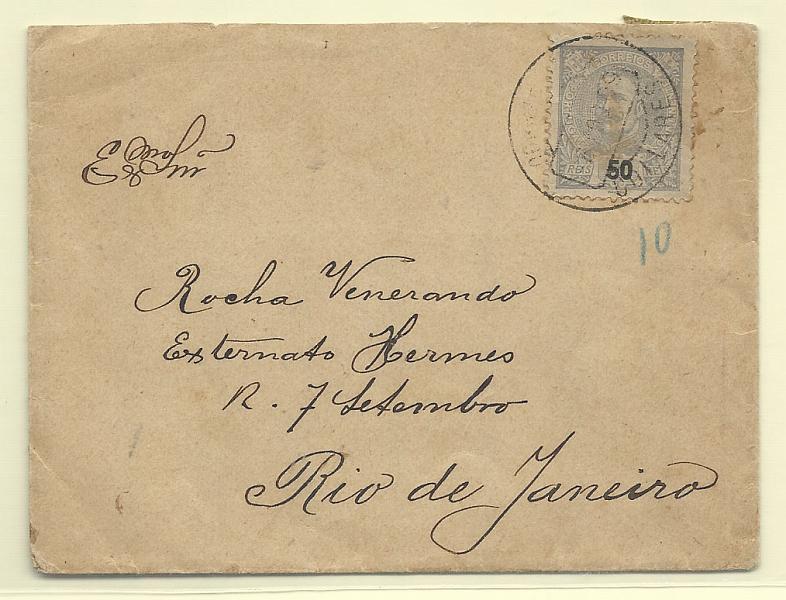 CORREIOS
REIS 50
COLLARES
Exmo Snr
10
Rocha Venerando
Externato Hermes
R. 7 Setembro
Rio de Janeiro